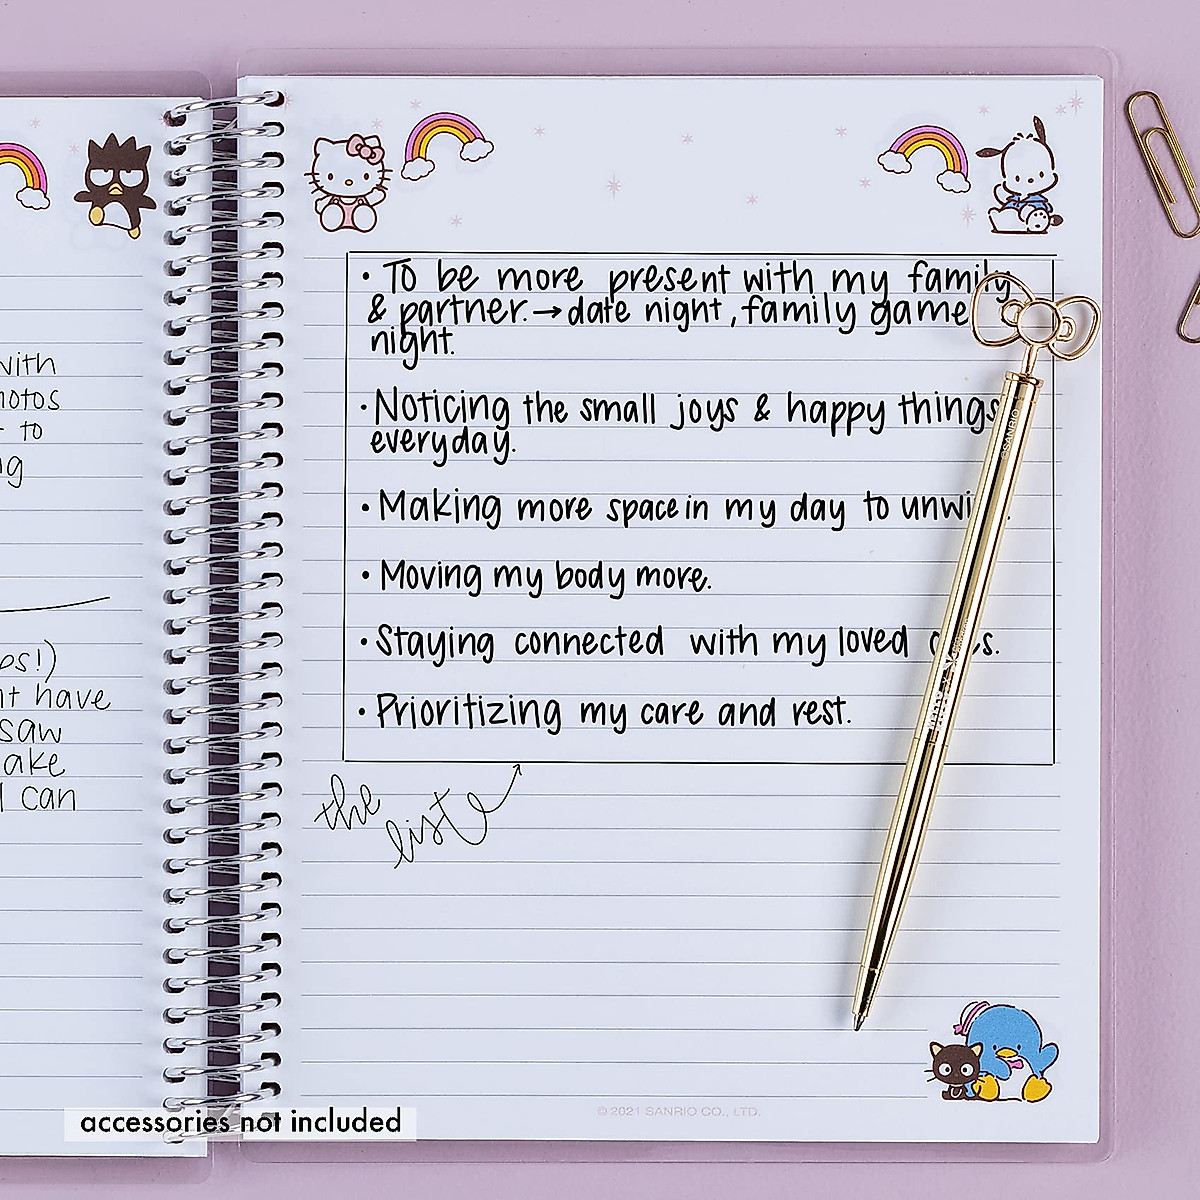 with
notos
to
ng
ps!)
nt have
saw
ake
I can
• To be more present with my family
& partner. → date night, family game
night.
• Noticing the small joys & happy things
everyday.
• Making more space in my day to unwi
• Moving my body more.
• Staying connected with my loved o es.
• Prioritizing my care and rest.
the
list
©SANRIO
© 2021 SANRIO CO., LTD.
accessories not included